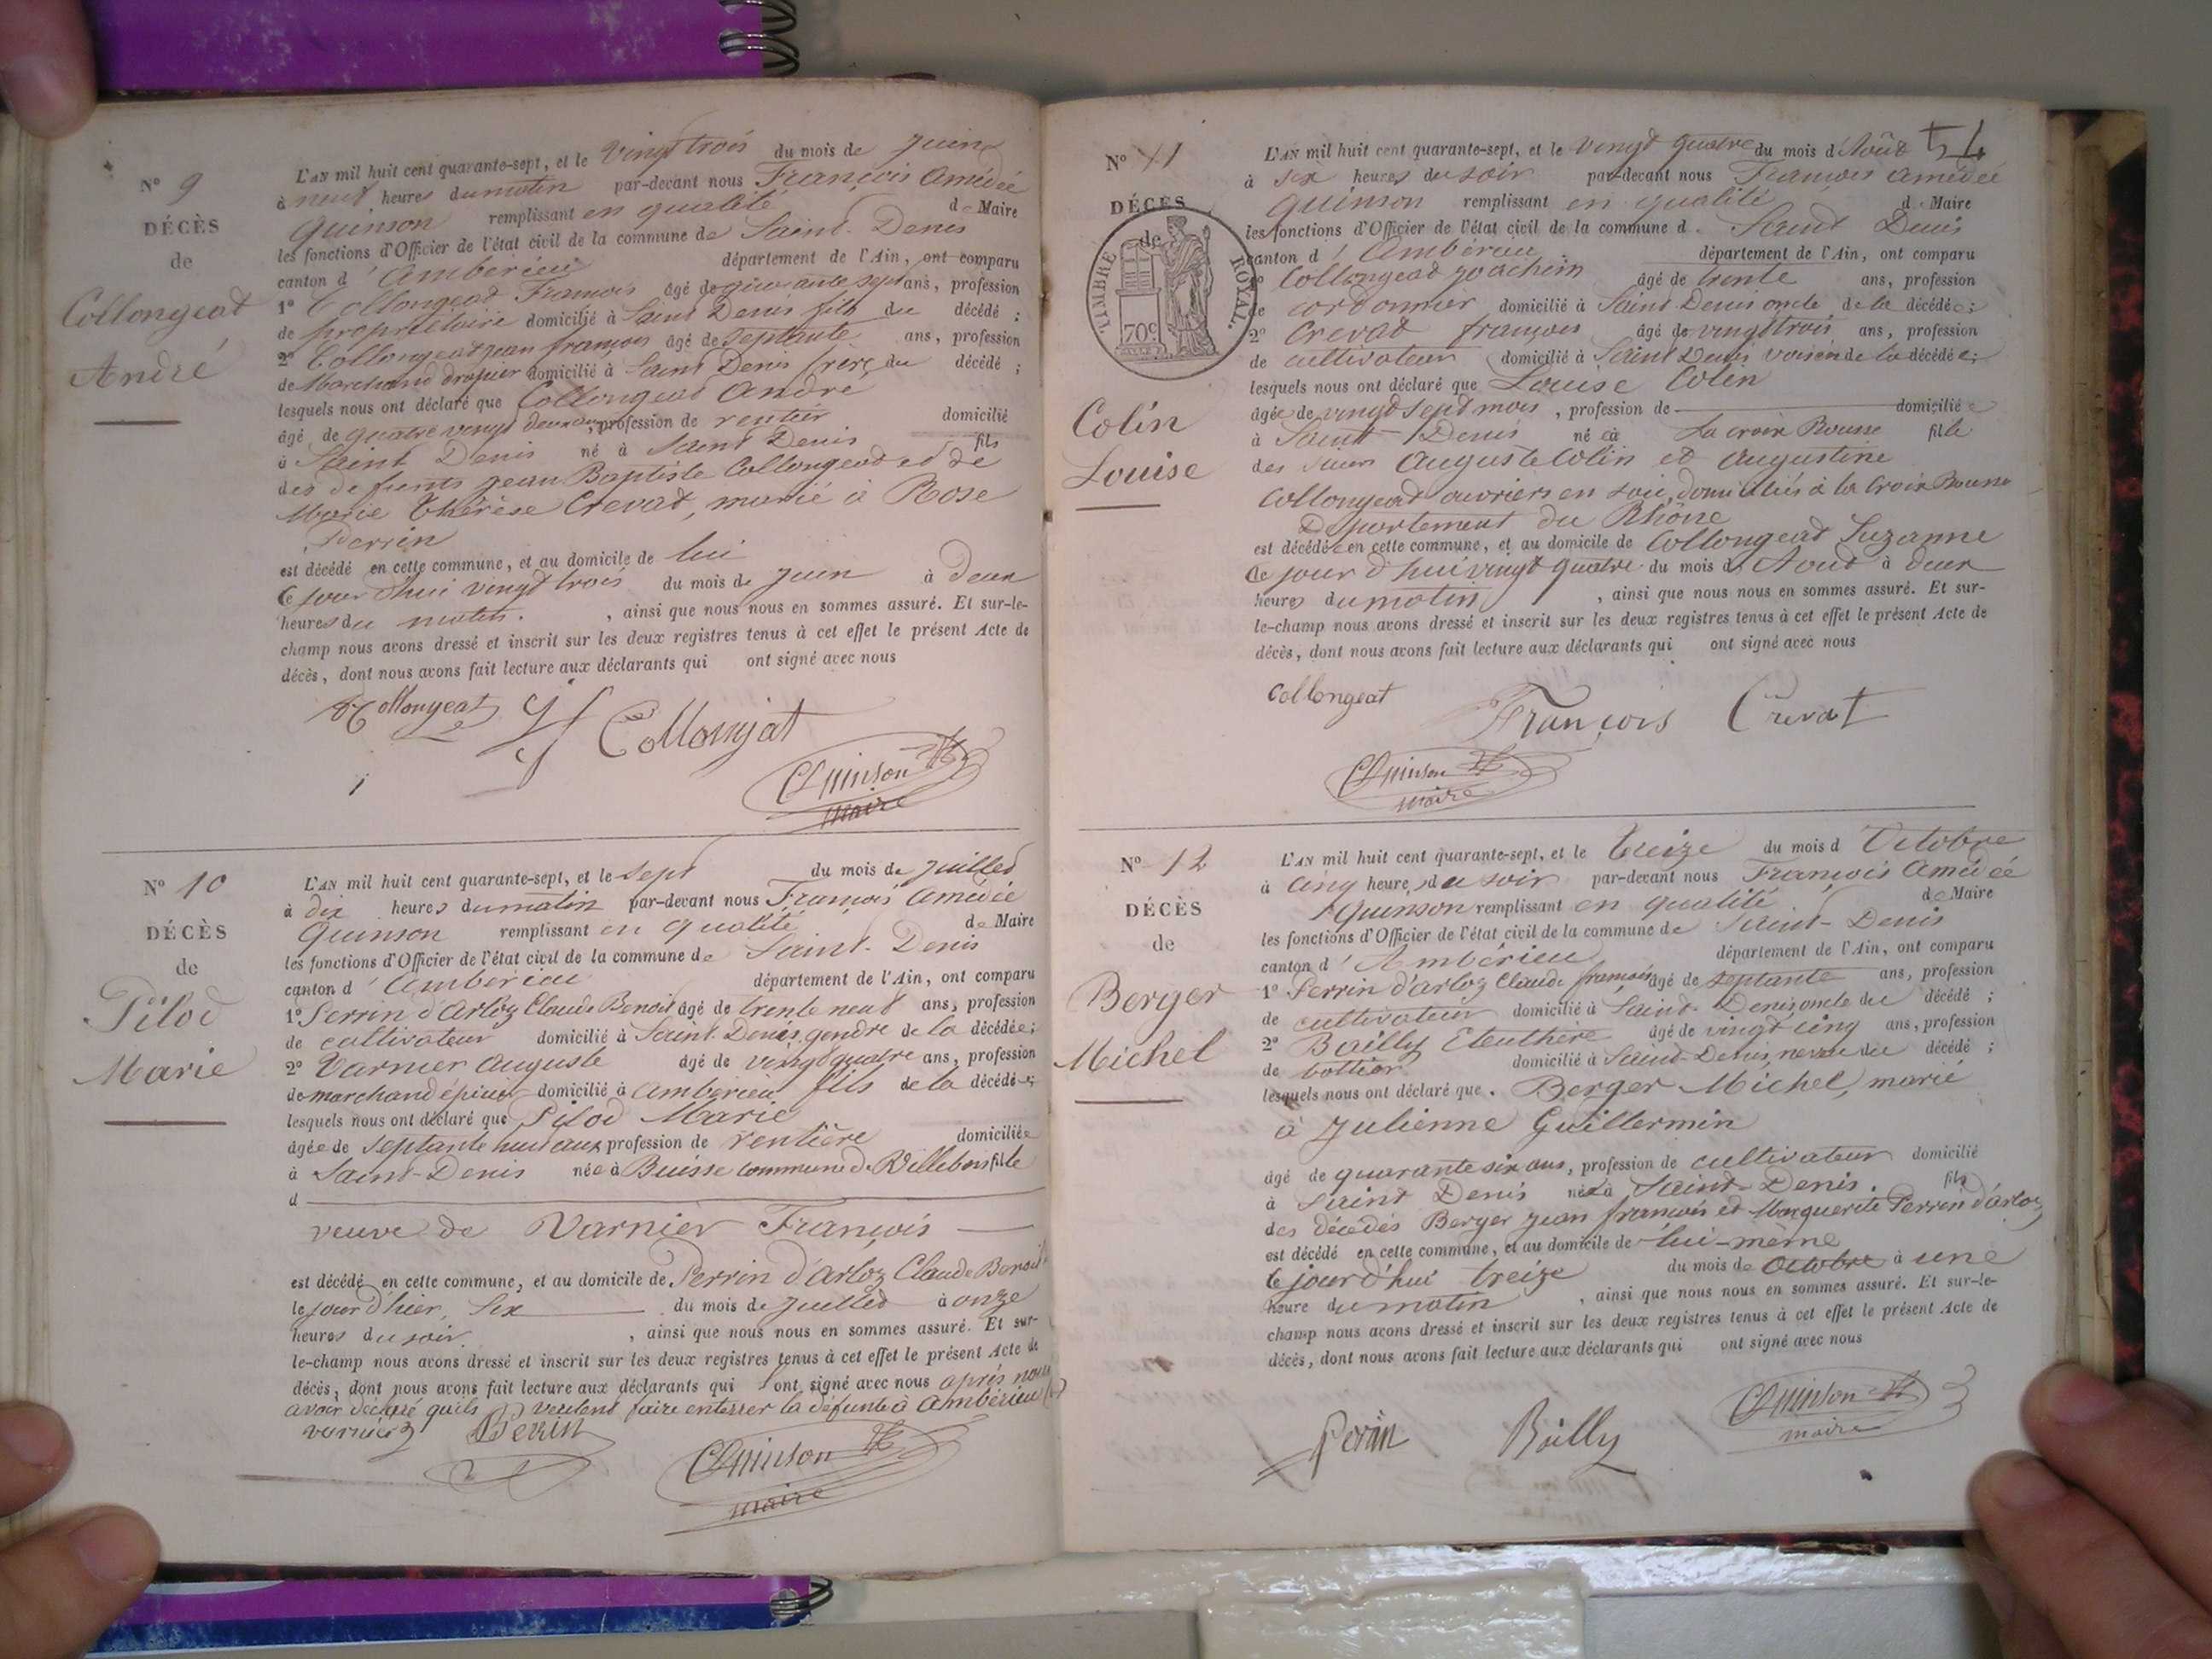 N° 9
DÉCÈS
de
Collongeat
André
L'AN mil huit cent quarante-sept, et le vingt trois du mois de juin
à neuf heures du matin par-devant nous François Amédée
Quinson remplissant en qualité de Maire
les fonctions d'Officier de l'état civil de la commune de Saint-Denis
canton d'Ambérieu département de l'Ain, ont comparu
1° Collongeat François âgé de quarante sept ans, profession
de propriétaire domicilié à Saint Denis fils du décédé ;
2° Collongeat jean françois âgé de septante ans, profession
de Marchand drapier domicilié à Saint Denis frère du décédé ;
lesquels nous ont déclaré que Collongeat André
âgé de quatre vingt deux ans, profession de rentier domicilié
à Saint Denis né à Saint Denis fils
des defunts jean Baptiste Collongeat et de
Marie Thérèse Crevat, marié à Rose
Perrin
est décédé en cette commune, et au domicile de lui
le jour d'hui vingt trois du mois de juin à deux
heures du matin. , ainsi que nous nous en sommes assuré. Et sur-le-
champ nous avons dressé et inscrit sur les deux registres tenus à cet effet le présent Acte de
décès, dont nous avons fait lecture aux déclarants qui ont signé avec nous
Collongeat Collonjat
Quinson
maire
N° 10
DÉCÈS
de
Pilod
Marie
L'AN mil huit cent quarante-sept, et le sept du mois de juillet
à dix heures du matin par-devant nous François Amédée
Quinson remplissant en qualité de Maire
les fonctions d'Officier de l'état civil de la commune de Saint-Denis
canton d'Ambérieu département de l'Ain, ont comparu
1° Perrin d'Arloz Claude Benoit âgé de trente neuf ans, profession
de cultivateur domicilié à Saint-Denis, gendre de la décédée ;
2° Varnier Auguste âgé de vingt quatre ans, profession
de marchand épicier domicilié à Ambérieu fils de la décédée ;
lesquels nous ont déclaré que Pilod Marie
âgée de septante huit ans, profession de rentière domiciliée
à Saint-Denis née à Buisse commune de Villebois fille
d
veuve de Varnier François
est décédé en cette commune, et au domicile de Perrin d'Arloz Claude Benoit
le jour d'hier, six du mois de juillet à onze
heures du soir , ainsi que nous nous en sommes assuré. Et sur-
le-champ nous avons dressé et inscrit sur les deux registres tenus à cet effet le présent Acte de
décès, dont nous avons fait lecture aux déclarants qui ont signé avec nous après nous
avoir déclaré qu'ils veulent faire enterrer la défunte à Ambérieu
Varnier Perrin
Quinson
maire
N° 11
DÉCÈS
de
TIMBRE ROYAL.
70c
Colin
Louise
54
L'AN mil huit cent quarante-sept, et le vingt quatre du mois d'Août
à six heures du soir par-devant nous François Amédée
Quinson remplissant en qualité de Maire
les fonctions d'Officier de l'état civil de la commune d. Saint Denis
canton d'Ambérieu département de l'Ain, ont comparu
1° Collongeat joachim âgé de trente ans, profession
de cordonnier domicilié à Saint-Denis oncle de la décédée ;
2° Crevat françois âgé de vingt trois ans, profession
de cultivateur domicilié à Saint Denis voisin de la décédée ;
lesquels nous ont déclaré que Louise Colin
âgée de vingt sept mois, profession de domiciliée
à Saint-Denis né à La croix Rousse fille
des sieurs Auguste Colin et Augustine
Collongeat ouvriers en soie, domiciliés à la Croix Rousse
Département du Rhône
est décédée en cette commune, et au domicile de Collongeat Suzanne
le jour d'hui vingt quatre du mois d'Août à deux
heures du matin , ainsi que nous nous en sommes assuré. Et sur-
le-champ nous avons dressé et inscrit sur les deux registres tenus à cet effet le présent Acte de
décès, dont nous avons fait lecture aux déclarants qui ont signé avec nous
Collongeat François Crevat
Quinson
maire
N° 12
DÉCÈS
de
Berger
Michel
L'AN mil huit cent quarante-sept, et le treize du mois d'Octobre
à cinq heures du soir par-devant nous François Amédée
Quinson remplissant en qualité de Maire
les fonctions d'Officier de l'état civil de la commune de Saint-Denis
canton d'Ambérieu département de l'Ain, ont comparu
1° Perrin d'arloz Claude françois âgé de septante ans, profession
de cultivateur domicilié à Saint-Denis, oncle du décédé ;
2° Bailly Eleuthère âgé de vingt cinq ans, profession
de bottier domicilié à Saint-Denis, neveu du décédé ;
lesquels nous ont déclaré que Berger Michel, marié
à Julienne Guillermin
âgé de quarante six ans, profession de cultivateur domicilié
à Saint Denis né à Saint-Denis. fils
des décédés Berger jean françois et Marguerite Perrin d'arloz
est décédé en cette commune, et au domicile de lui-même
le jourd'hui treize du mois de Octobre à une
heure du matin , ainsi que nous nous en sommes assuré. Et sur-le-
champ nous avons dressé et inscrit sur les deux registres tenus à cet effet le présent Acte de
décès, dont nous avons fait lecture aux déclarants qui ont signé avec nous
Perrin Bailly Quinson
maire